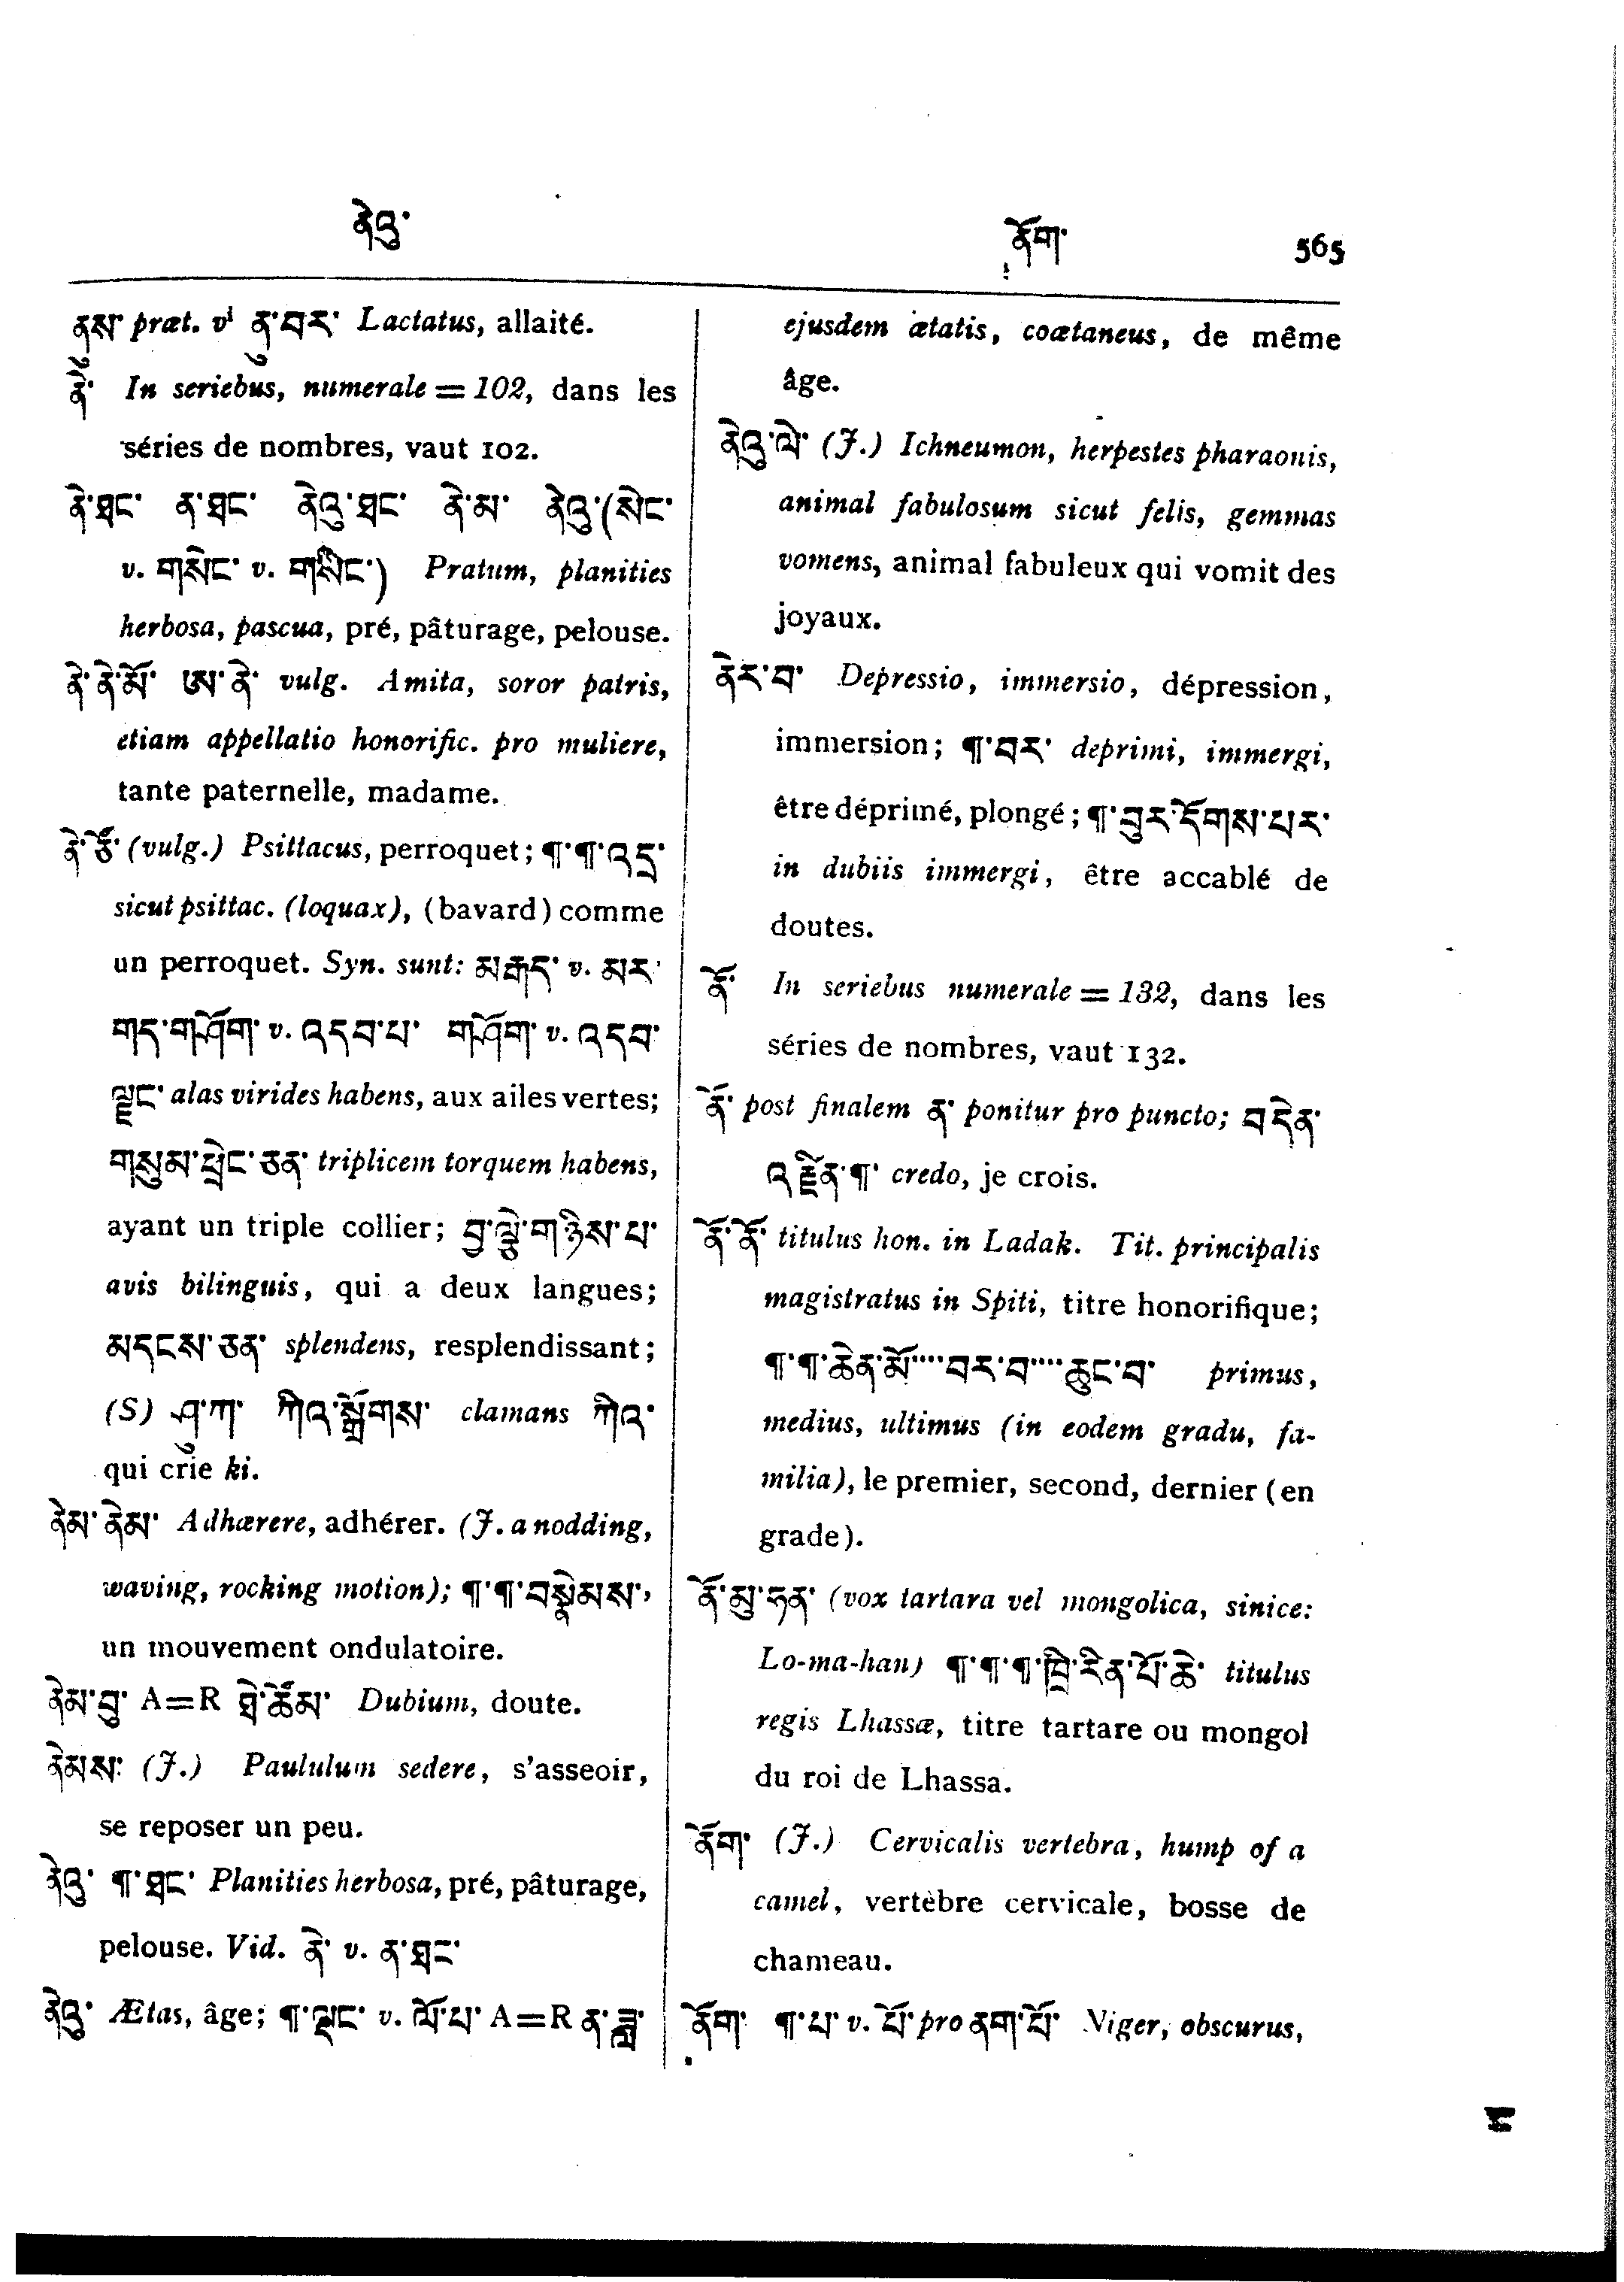 ནེའུ་
ནོག་ 565
ནུས་ præt. vi ནུ་བར་ Lactatus, allaité.
ནེ་ In seriebus, numerale = 102, dans les
séries de nombres, vaut 102.
ནེ་ཐང་ ན་ཐང་ ནེའུ་ཐང་ ནེ་མ་ ནེའུ་(སེང་
v. གསེང་ v. གསིང་) Pratum, planities
herbosa, pascua, pré, pâturage, pelouse.
ནེ་ནེ་མོ་ ཨ་ནེ་ vulg. Amita, soror patris,
etiam appellatio honorific. pro muliere,
tante paternelle, madame.
ནེ་ཙོ་ (vulg.) Psittacus, perroquet; ¶་¶་འདྲ་
sicut psittac. (loquax), (bavard) comme
un perroquet. Syn. sunt: མརྒད་ v. མར་
གད་གཤོག་ v. འདབ་པ་ གཤོག་ v. འདབ་
ལྗང་ alas virides habens, aux ailes vertes;
གསུམ་ཕྲེང་ཅན་ triplicem torquem habens,
ayant un triple collier; བྱ་ལྕེ་གཉིས་པ་
avis bilinguis, qui a deux langues;
མདངས་ཅན་ splendens, resplendissant;
(S) ཤུ་ཀ་ ཀིའ་སྒྲོགས་ clamans ཀིའ་
qui crie ki.
ནེམ་ནེམ་ Adhærere, adhérer. (J. a nodding,
waving, rocking motion); ¶་¶་བསྣེམས་,
un mouvement ondulatoire.
ནེམ་བུ་ A=R ཐེ་ཚོམ་ Dubium, doute.
ནེམས་ (J.) Paululum sedere, s'asseoir,
se reposer un peu.
ནེའུ་ ¶་ཐང་ Planities herbosa, pré, pâturage,
pelouse. Vid. ནེ་ v. ན་ཐང་
ནེའུ་ Ætas, âge; ¶་ལྡང་ v. ལོ་པ་ A=R ན་ཟླ་
ejusdem ætatis, coætaneus, de même
âge.
ནེའུ་ལེ་ (J.) Ichneumon, herpestes pharaonis,
animal fabulosum sicut felis, gemmas
vomens, animal fabuleux qui vomit des
joyaux.
ནེར་བ་ Depressio, immersio, dépression,
immersion; ¶་བར་ deprimi, immergi,
être déprimé, plongé; ¶་བུར་དོགས་པར་
in dubiis immergi, être accablé de
doutes.
ནོ་ In seriebus numerale = 132, dans les
séries de nombres, vaut 132.
ནོ་ post finalem ན་ ponitur pro puncto; བདེན་
འཛིན་¶་ credo, je crois.
ནོ་ནོ་ titulus hon. in Ladak. Tit. principalis
magistratus in Spiti, titre honorifique;
¶་¶་ཆེན་མོ་···བར་བ་···ཆུང་བ་ primus,
medius, ultimus (in eodem gradu, fa-
milia), le premier, second, dernier (en
grade).
ནོ་མུ་ཧན་ (vox tartara vel mongolica, sinice:
Lo-ma-han) ¶་¶་¶་ཁྲི་རིན་པོ་ཆེ་ titulus
regis Lhassæ, titre tartare ou mongol
du roi de Lhassa.
ནོག་ (J.) Cervicalis vertebra, hump of a
camel, vertèbre cervicale, bosse de
chameau.
ནོག་ ¶་པ་ v. པོ་ pro ནག་པོ་ Niger, obscurus,